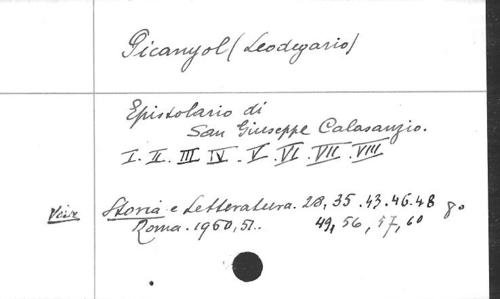 Picanyol (Leodegario)
Epistolario di
San Giuseppe Calasanzio.
I. II. III IV. V. VI. VII. VIII
Storia e Letteratura. 28, 35. 43. 46. 48 8°
Roma. 1950, 51.. 49, 56, 57, 60